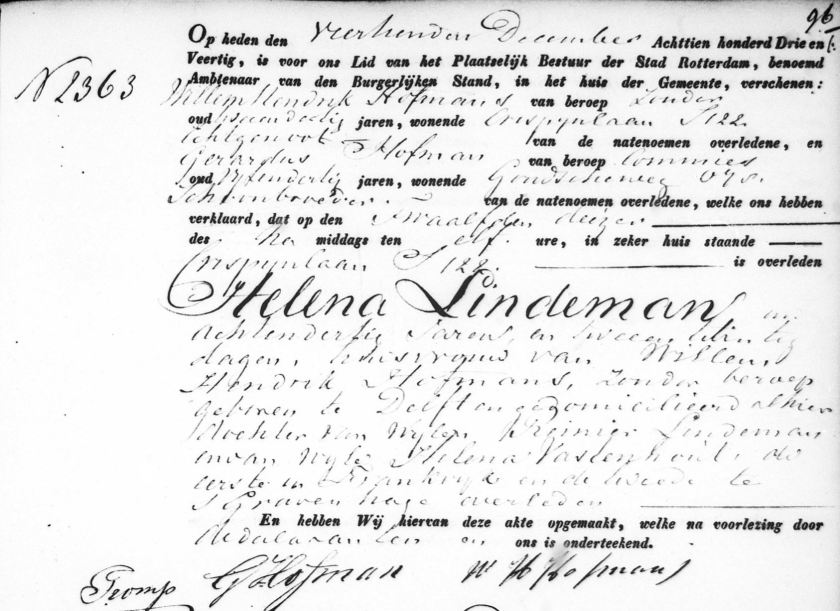 96
Op heden den Veertienden December Achttien honderd Drie en
Veertig, is voor ons Lid van het Plaatselijk Bestuur der Stad Rotterdam, benoemd
Ambtenaar van den Burgerlijken Stand, in het huis der Gemeente, verschenen:
N 2363
Willem Hendrik Hofmans van beroep Zonder
oud jaren, wonende Crispijnlaan S 122
Echtgenoot van de natenoemen overledene, en
Gerardus Hofman van beroep Commies
oud Vijfendertig jaren, wonende Goudscheweg
Schoonbroeder van de natenoemen overledene, welke ons hebben
verklaard, dat op den Twaalfden dezer
des na middags ten elf ure, in zeker huis staande
Crispijnlaan S 122. is overleden
Helena Lindeman
achtendertig Jaren, en twee en twintig
dagen, huisvrouw van Willem
Hendrik Hofmans, Zonder beroep
geboren te Delft en gedomicilieerd alhier
dochter van wijlen Lindeman
en van wijle Helena Vastenhout, de
eerste in Frankrijk en de tweede te
s Gravenhage overleden
En hebben Wij hiervan deze akte opgemaakt, welke na voorlezing door
de Comparanten en ons is onderteekend.
Tromp G Hofman W H Hofmans